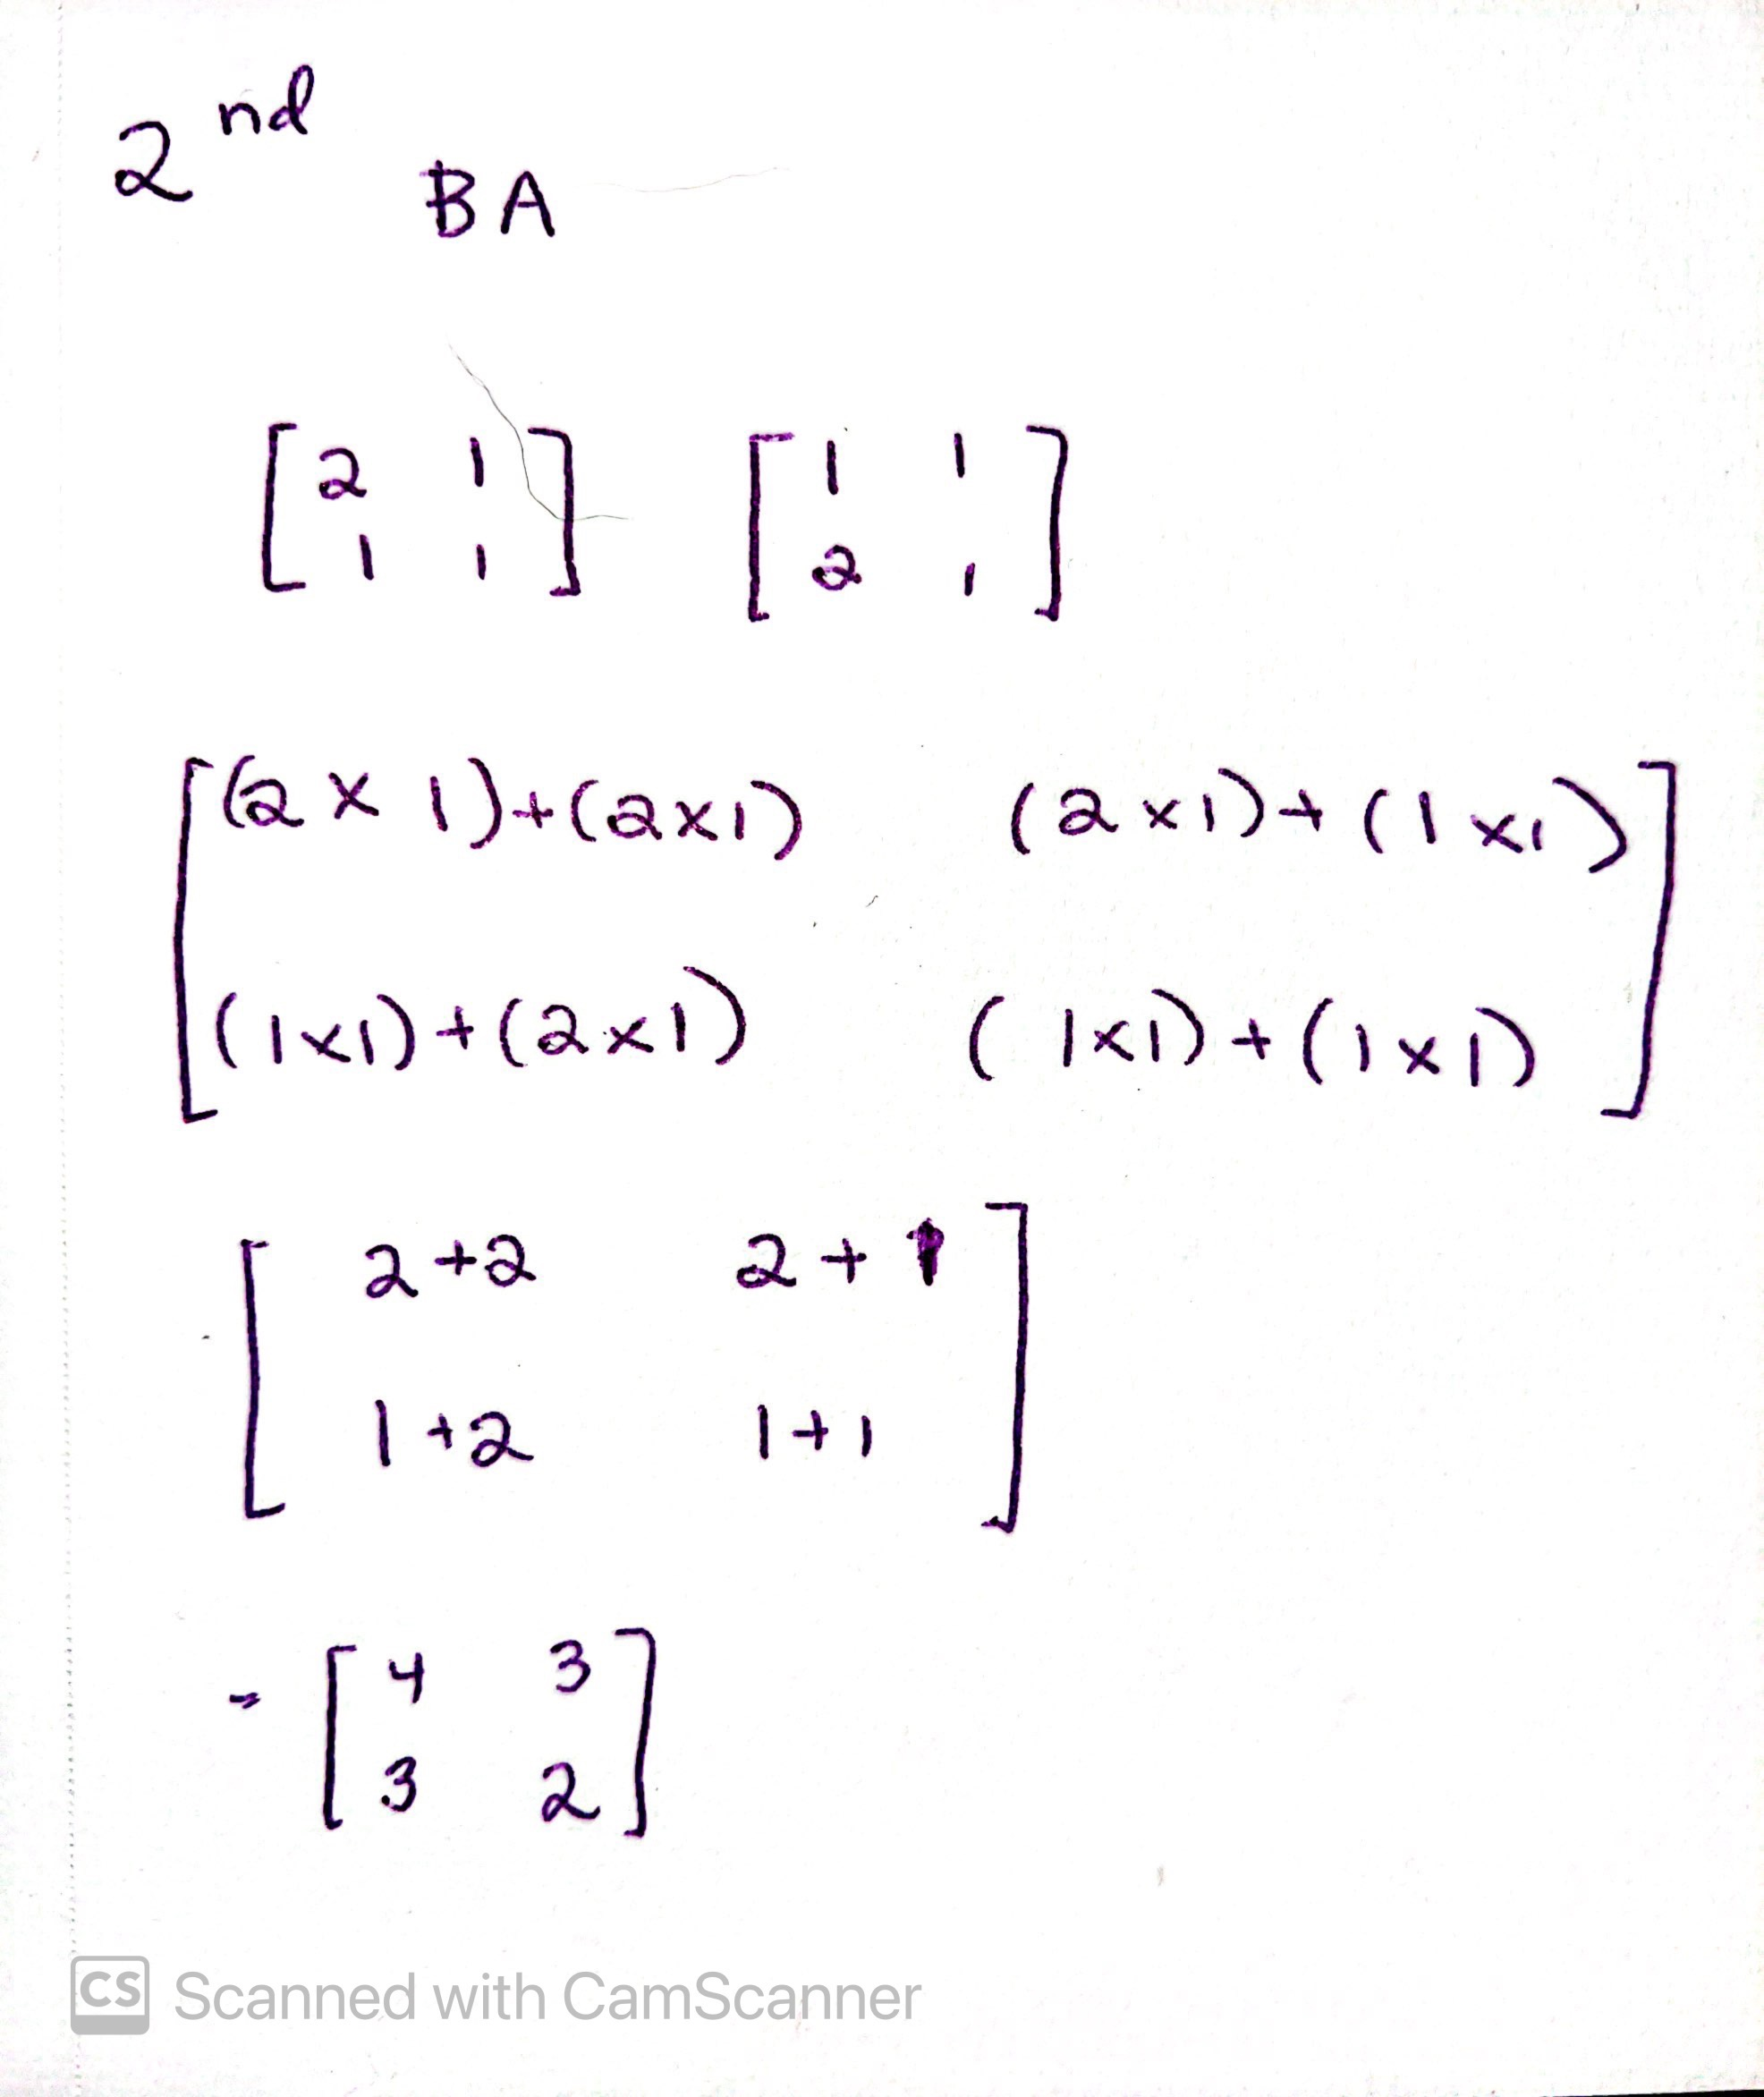 2nd
BA
[2 1] [1 1]
[1 1] [2 1]
[(2 x 1)+(2x1) (2x1)+(1x1)]
[(1x1)+(2x1) (1x1)+(1x1)]
[2+2 2+1]
[1+2 1+1]
= [4 3]
[3 2]
CS Scanned with CamScanner